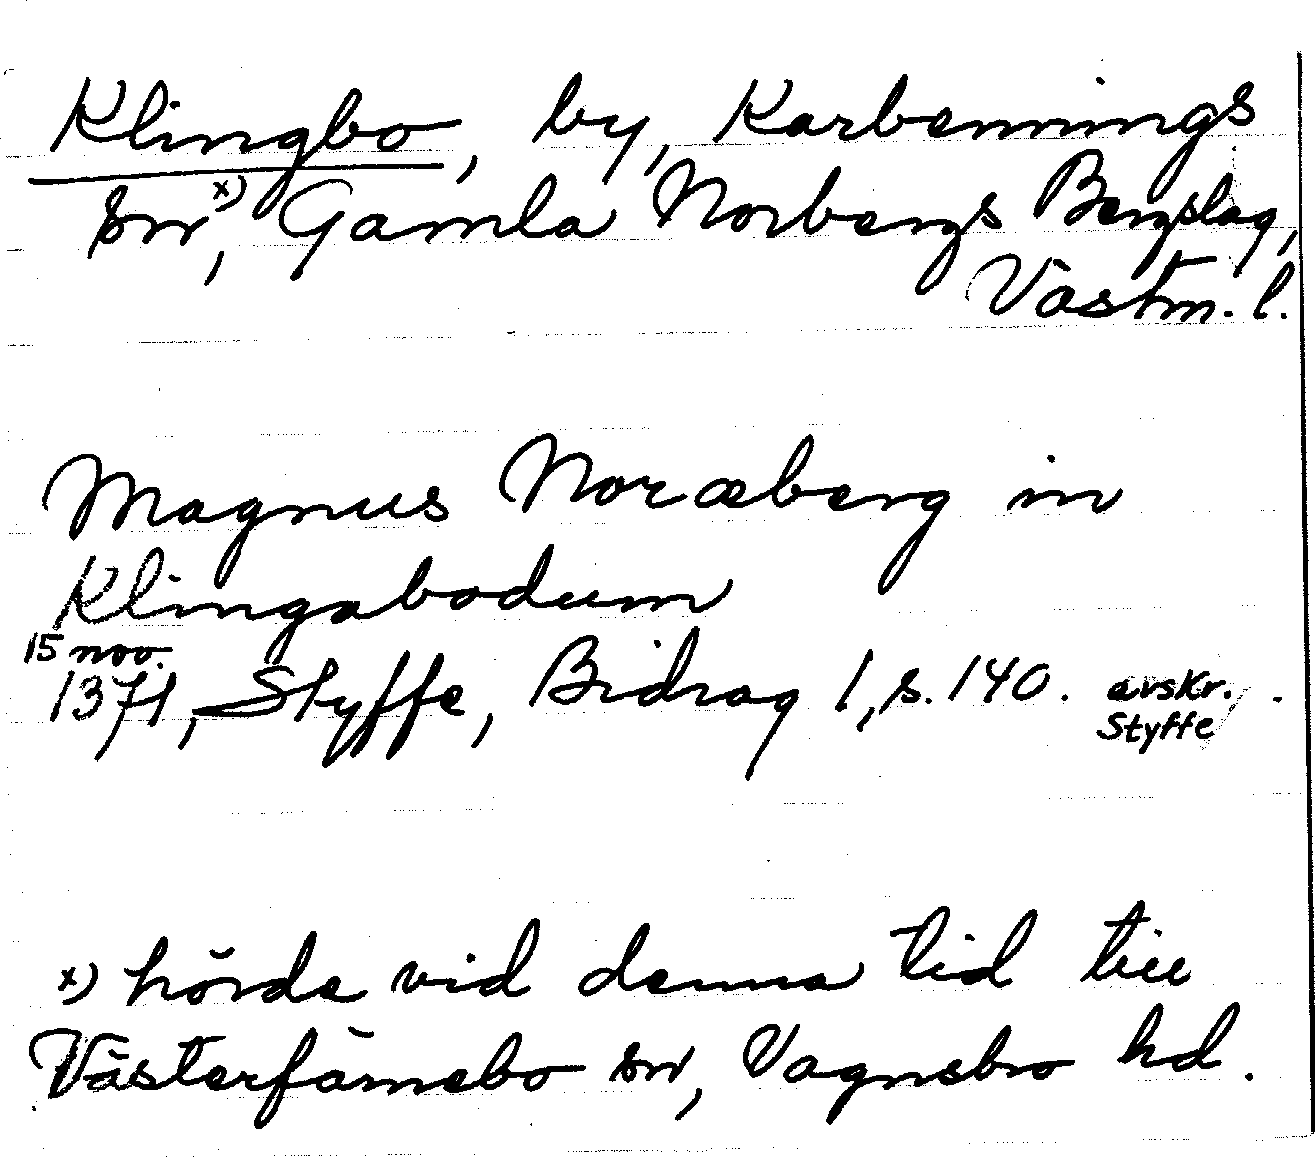 Klingbo, by, Karbennings
sn x), Gamla Norbergs Bergslag,
Västm. l.
Magnus Noræberg in
Klingabodum
15 nov.
1371, Styffe, Bidrag 1, s. 140. avskr.
Styffe
x) hörde vid denna tid till
Västerfärnebo sn, Vagnsbro hd.